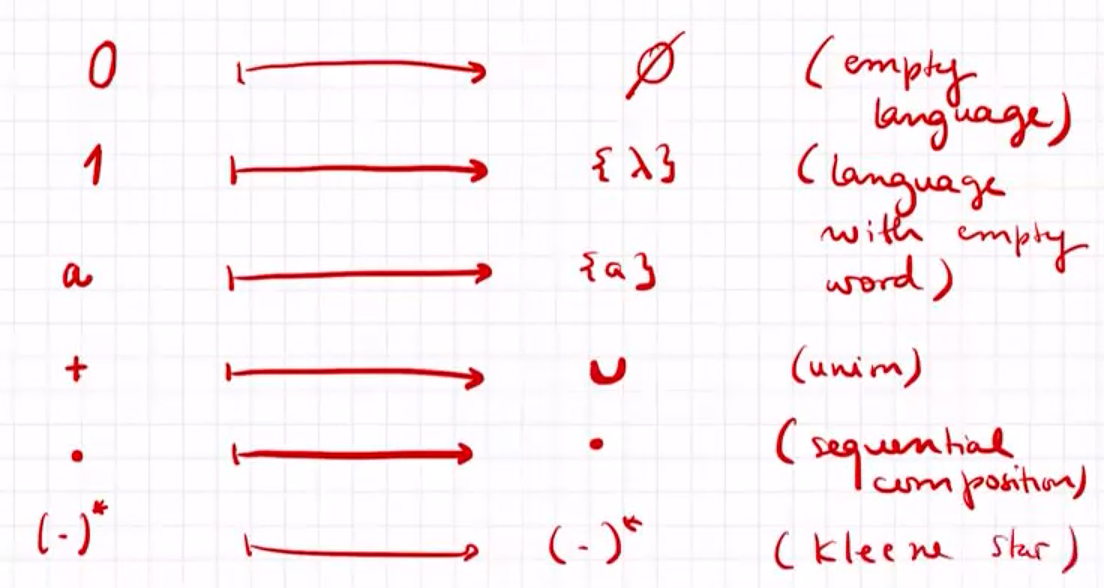 0 ↦ ∅ (empty
language)
1 ↦ {λ} (language
with empty
a ↦ {a} word)
+ ↦ ∪ (union)
· ↦ · (sequential
composition)
(-)* ↦ (-)* (Kleene star)